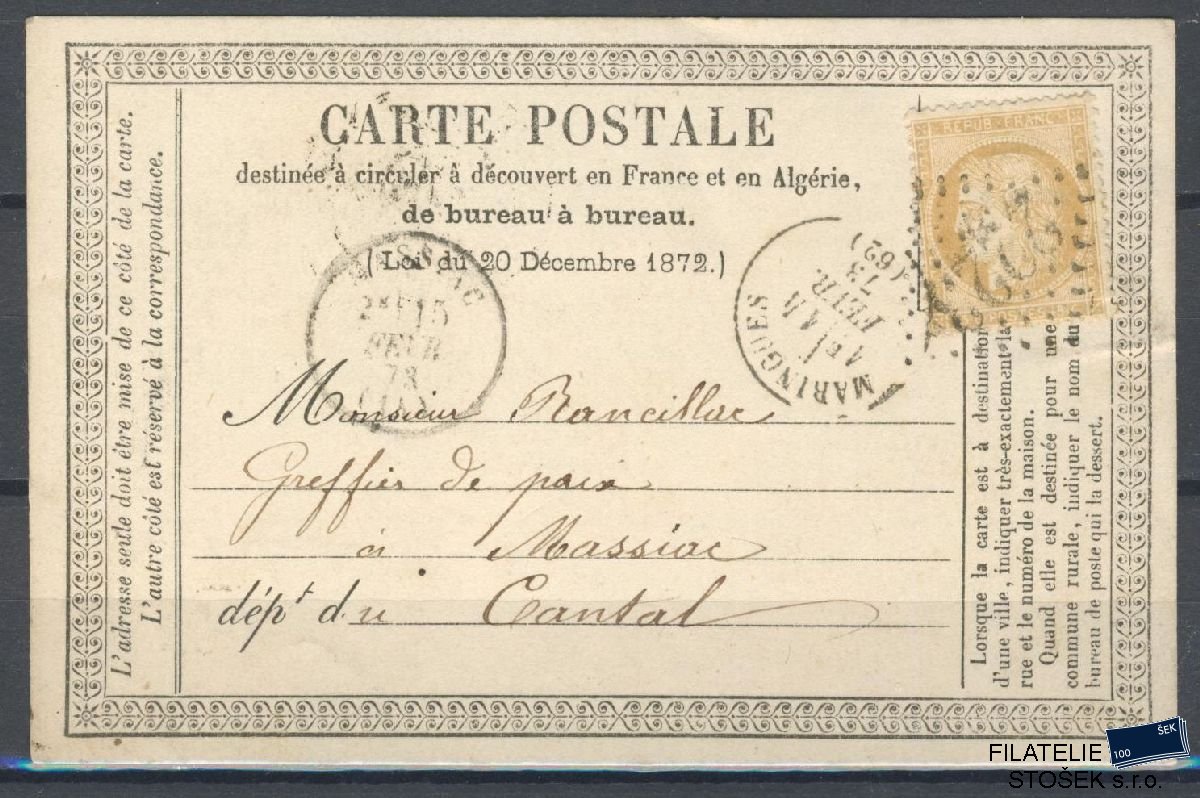 CARTE POSTALE
destinée à circuler à découvert en France et en Algérie,
de bureau à bureau.
(Loi du 20 Décembre 1872.)
L'adresse seule doit être mise de ce côté de la carte.
L'autre côté est réservé à la correspondance.
REPUB. FRANC.
MARINGUES
15
FEVR.
73
(62)
15
FEVR
73
Monsieur Rancillac
Greffier de paix
à Massiac
dépt du Cantal
Lorsque la carte est à destination
d'une ville, indiquer très-exactement la
rue et le numéro de la maison.
Quand elle est destinée pour une
commune rurale, indiquer le nom du
bureau de poste qui la dessert.
100 ŠEK
FILATELIE
STOŠEK s.r.o.